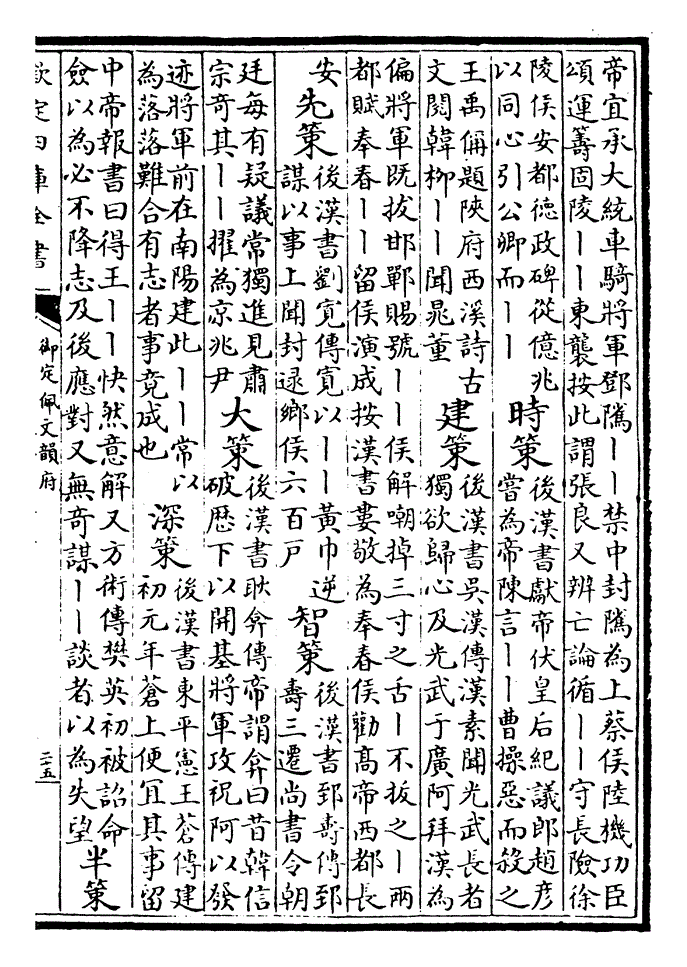 帝宜承大統車騎將軍鄧隲丨丨禁中封隲為上蔡侯陸機功臣
頌運籌固陵丨丨東襲按此謂張良又辨亡論循丨丨守長險徐
陵侯安都德政碑從億兆
以同心引公卿而丨丨
時策
後漢書獻帝伏皇后紀議郎趙彥
嘗為帝陳言丨丨曹操惡而殺之
王禹偁題陝府西溪詩古
文閱韓柳丨丨聞晁董
建策
後漢書吳漢傳漢素聞光武長者
獨欲歸心及光武于廣阿拜漢為
偏將軍既拔邯鄲賜號丨丨侯解嘲掉三寸之舌丨不拔之丨兩
都賦奉春丨丨留侯演成按漢書婁敬為奉春侯勸高帝西都長
安
先策
後漢書劉寬傳寬以丨丨黃巾逆
謀以事上聞封逯鄉侯六百戶
智策
後漢書郅壽傳郅
壽三遷尚書令朝
廷每有疑議常獨進見肅
宗奇其丨丨擢為京兆尹
大策
後漢書耿弇傳帝謂弇曰昔韓信
破歴下以開基將軍攻祝阿以發
迹將軍前在南陽建此丨丨常以
為落落難合有志者事竟成也
深策
後漢書東平憲王蒼傳建
初元年蒼上便宜其事留
中帝報書曰得王丨丨快然意解又方術傳樊英初被詔命
僉以為必不降志及後應對又無奇謀丨丨談者以為失望
半策
欽定四庫全書
御定佩文韻府
二五